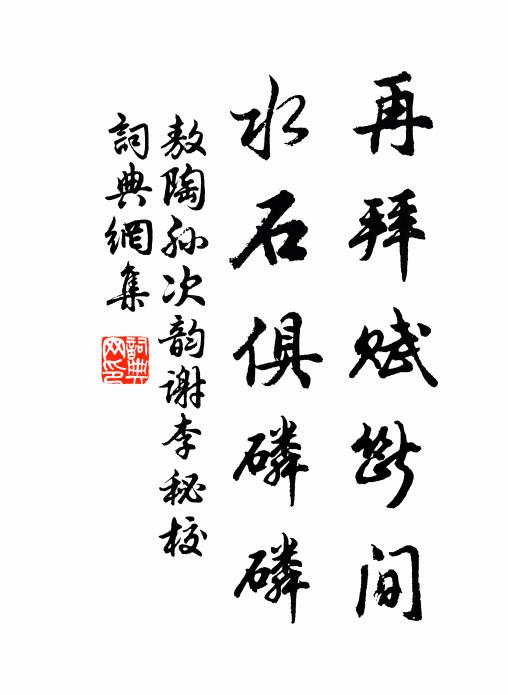 再拜赋斷间
水石俱磷磷
敖陶孙次韵谢李秘校
詞典網集
詞典网印